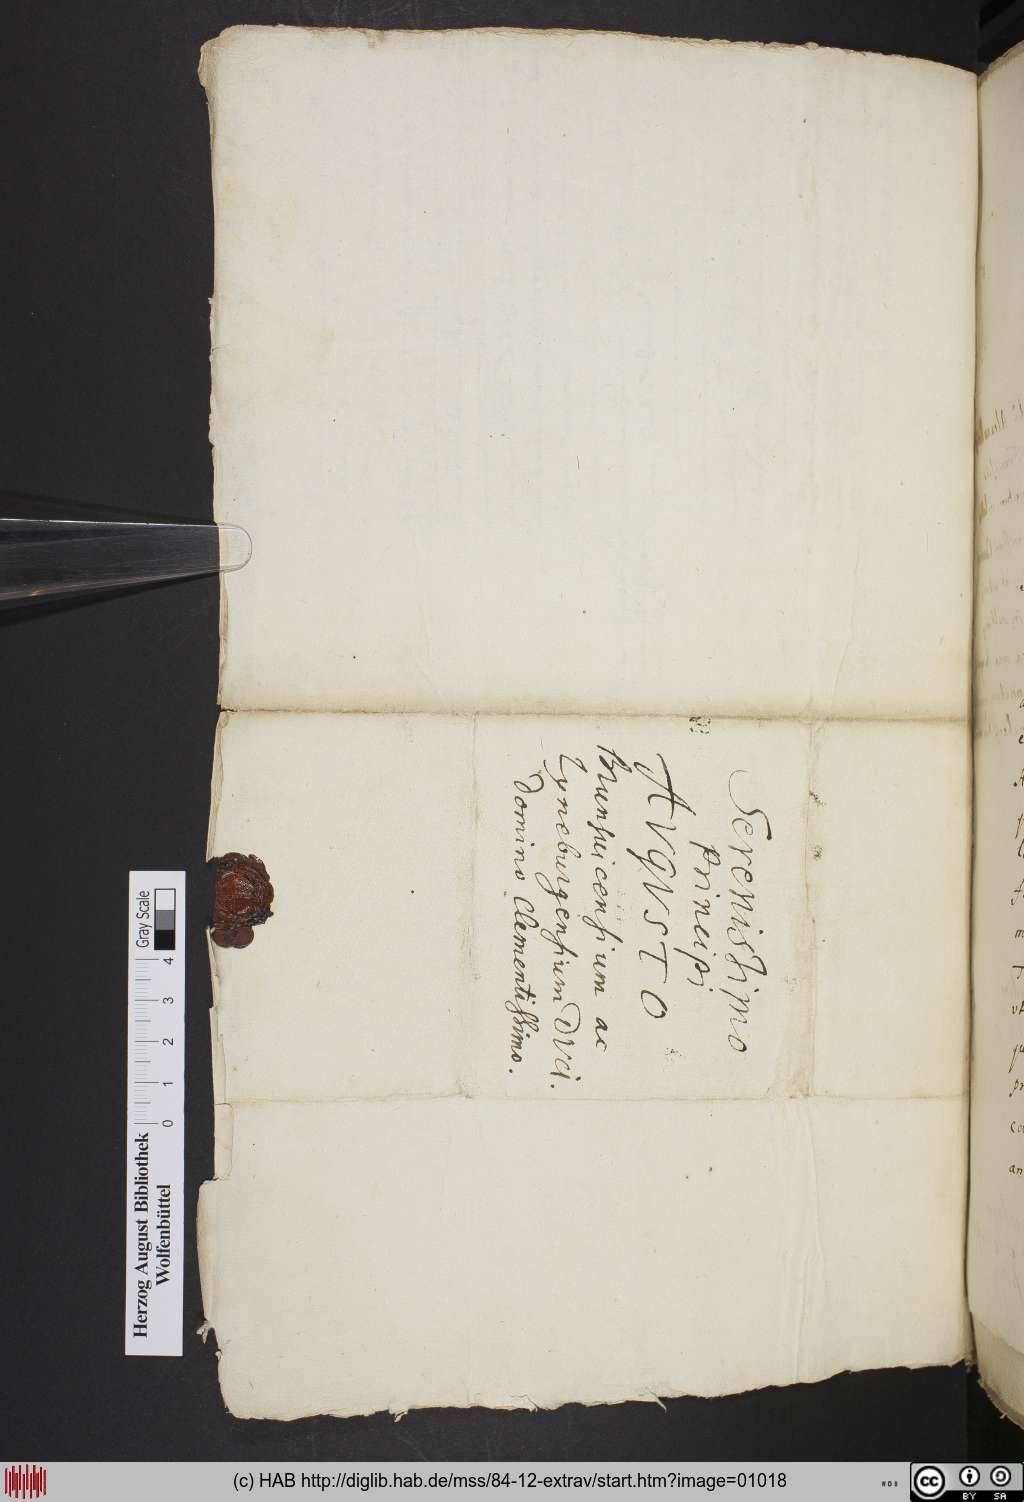 Serenissimo
Principi
AVGVSTO
Brunsuicensium ac
Lyneburgensium DVci.
Domino Clementissimo.
Herzog August Bibliothek
Wolfenbüttel
0 1 2 3 4
Gray Scale
(c) HAB http://diglib.hab.de/mss/84-12-extrav/start.htm?image=01018
cc BY SA